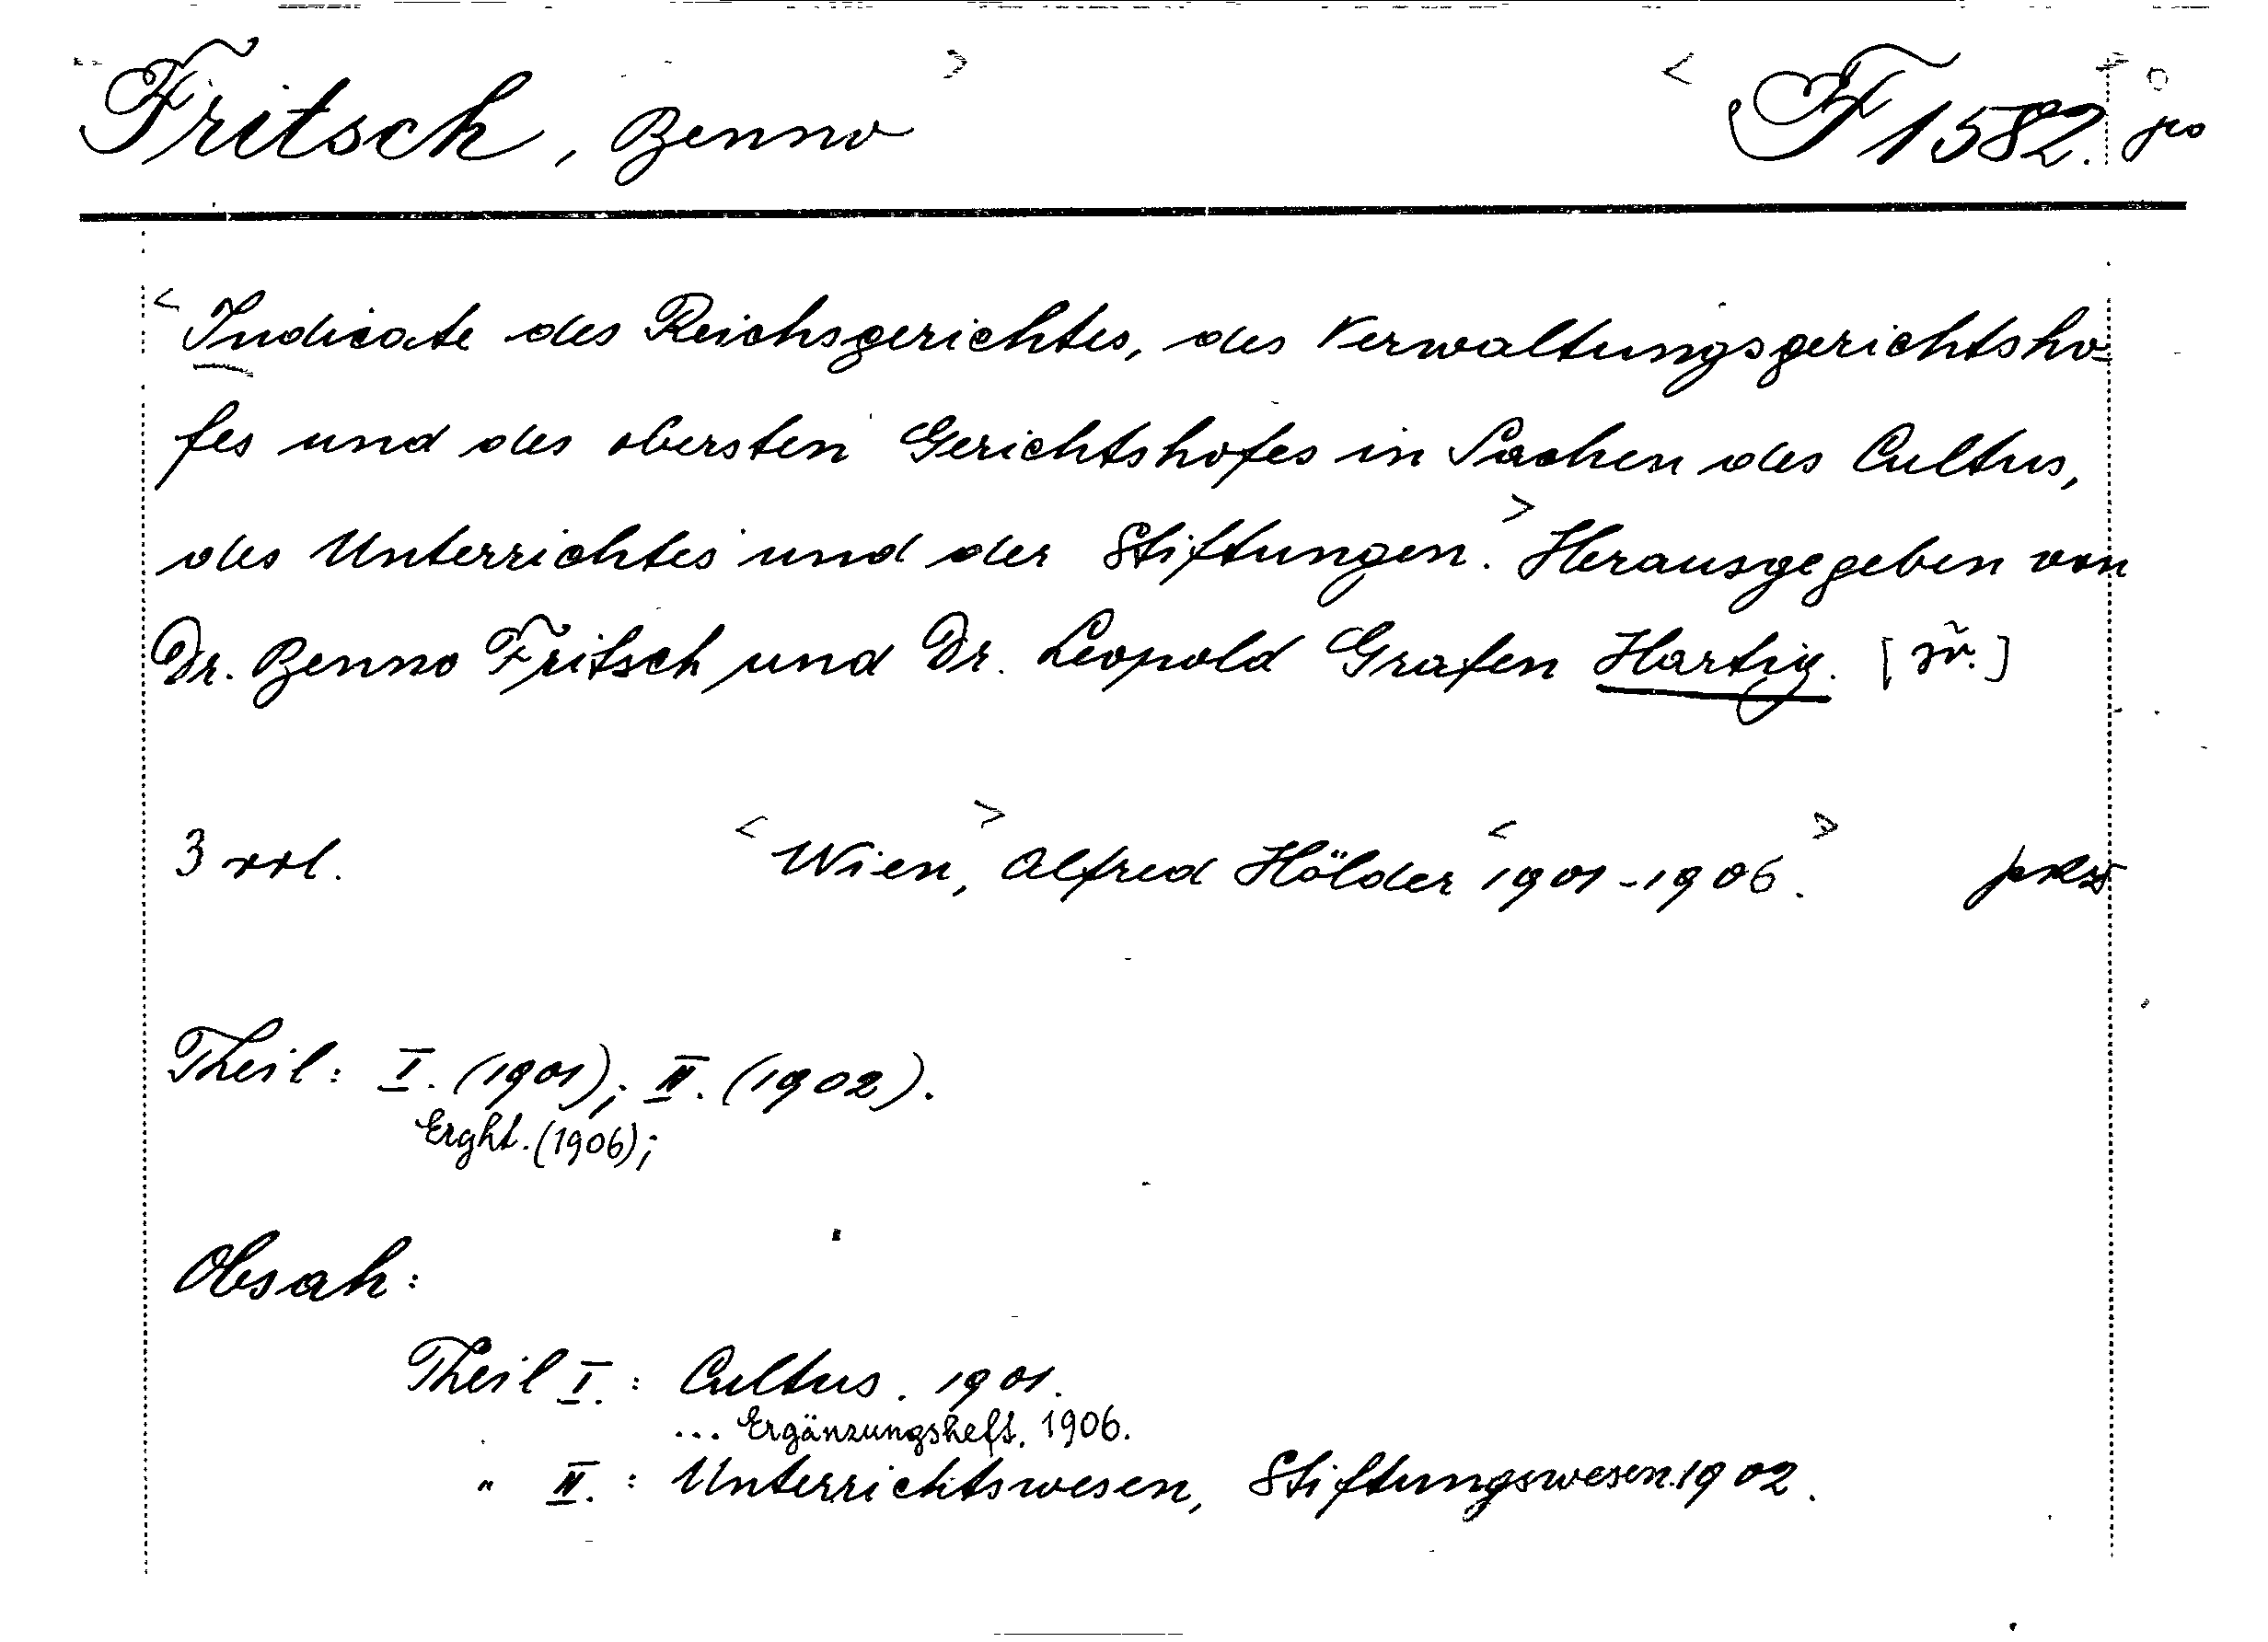 Fritsch, Benno F 1582.
Indicate des Reichsgerichtes, des Verwaltungsgerichtsho-
fes und des obersten Gerichtshofes in Sachen des Cultus,
des Unterrichtes und der Stiftungen. Herausgegeben von
Dr. Benno Fritsch und Dr. Leopold Grafen Hartig.
3 Wien, Alfred Hölder 1901-1906.
Theil: I. (1901); II. (1902).
Erght. (1906);
Obsah:
Theil I.: Cultus. 1901.
... Ergänzungsheft. 1906.
" II.: Unterrichtswesen, Stiftungswesen. 1902.